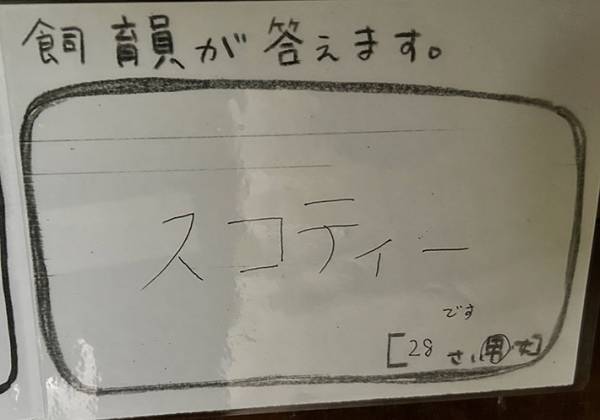 飼育員が答えます。
スコティー
です
[28 さい 男 女]